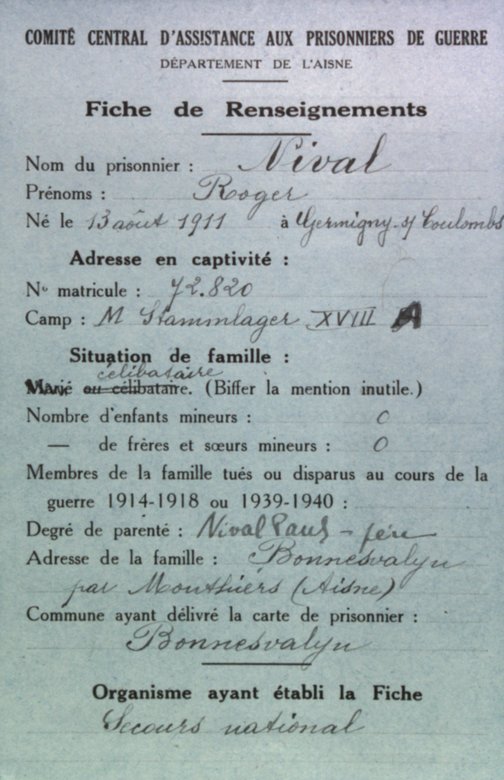 COMITÉ CENTRAL D'ASSISTANCE AUX PRISONNIERS DE GUERRE
DÉPARTEMENT DE L'AISNE
Fiche de Renseignements
Nom du prisonnier : Nival
Prénoms : Roger
Né le 13 août 1911 à Germigny s/ Coulombs
Adresse en captivité :
No matricule : 72.820
Camp : M Stammlager XVIII A
Situation de famille :
célibataire
Marié ou célibataire. (Biffer la mention inutile.)
Nombre d'enfants mineurs : 0
— de frères et sœurs mineurs : 0
Membres de la famille tués ou disparus au cours de la
guerre 1914-1918 ou 1939-1940 :
Degré de parenté : Nival Paul - père
Adresse de la famille : Bonnesvalyn
par Monthiers (Aisne)
Commune ayant délivré la carte de prisonnier :
Bonnesvalyn
Organisme ayant établi la Fiche
Secours national